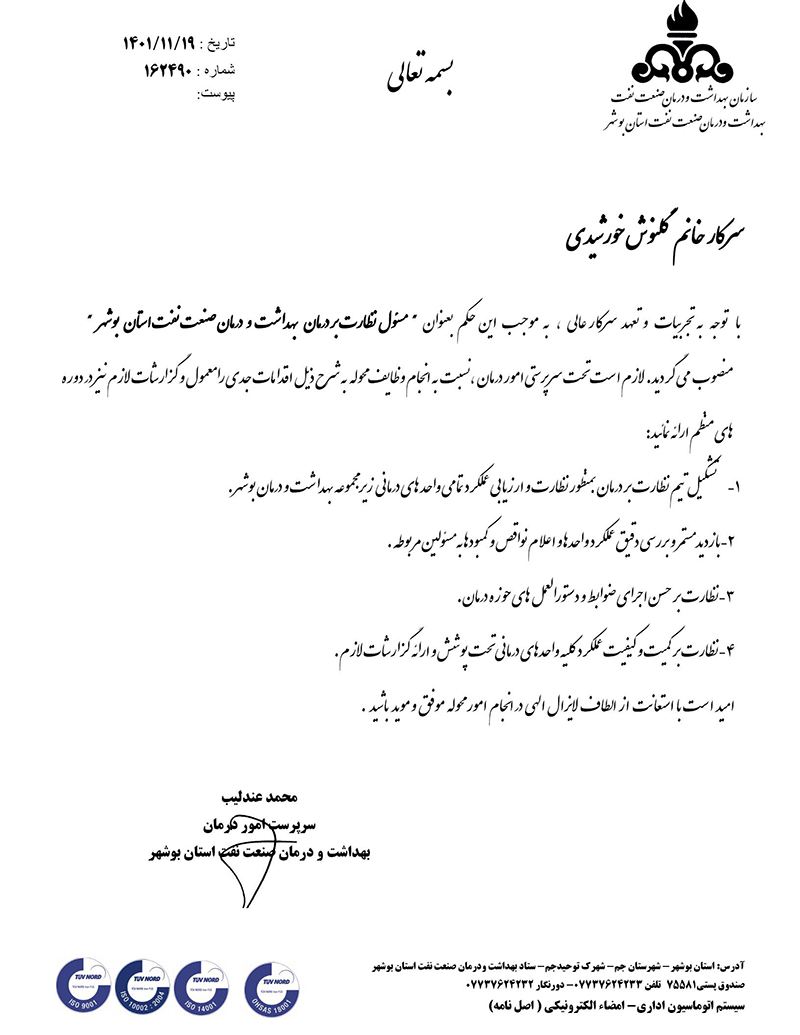 سازمان بهداشت و درمان صنعت نفت
بهداشت و درمان صنعت نفت استان بوشهر
بسمه تعالی
تاریخ : ۱۴۰۱/۱۱/۱۹
شماره : ۱۶۲۴۹۰
پیوست:
سرکار خانم گلنوش خورشیدی
با توجه به تجربیات و تعهد سرکار عالی ، به موجب این حکم بعنوان " مسئول نظارت بر درمان بهداشت و درمان صنعت نفت استان بوشهر "
منصوب می گردید. لازم است تحت سرپرستی امور درمان ،نسبت به انجام وظایف محوله به شرح ذیل اقدامات جدی را معمول و گزارشات لازم نیز در دوره
های منظم ارائه نمائید:
۱- تشکیل تیم نظارت بر درمان بمنظور نظارت و ارزیابی عملکرد تمامی واحد های درمانی زیرمجموعه بهداشت و درمان بوشهر.
۲-بازدید مستمر و بررسی دقیق عملکرد واحدها و اعلام نواقص و کمبودها به مسئولین مربوطه .
۳-نظارت بر حسن اجرای ضوابط و دستورالعمل های حوزه درمان.
۴-نظارت بر کمیت و کیفیت عملکرد کلیه واحدهای درمانی تحت پوشش و ارائه گزارشات لازم .
امید است با استعانت از الطاف لایزال الهی در انجام امور محوله موفق و موید باشید .
محمد عندلیب
سرپرست امور درمان
بهداشت و درمان صنعت نفت استان بوشهر
آدرس: استان بوشهر – شهرستان جم– شهرک توحیدجم– ستاد بهداشت ودرمان صنعت نفت استان بوشهر
صندوق پستی۷۵۵۸۱ تلفن ۰۷۷۳۷۶۲۴۲۳۳– دورنگار ۰۷۷۳۷۶۲۴۲۳۲
سیستم اتوماسیون اداری– امضاء الکترونیکی ( اصل نامه)
TÜV NORD
ISO 9001
TÜV NORD
ISO 10002 : 2004
TÜV NORD
ISO 14001
TÜV NORD
OHSAS 18001